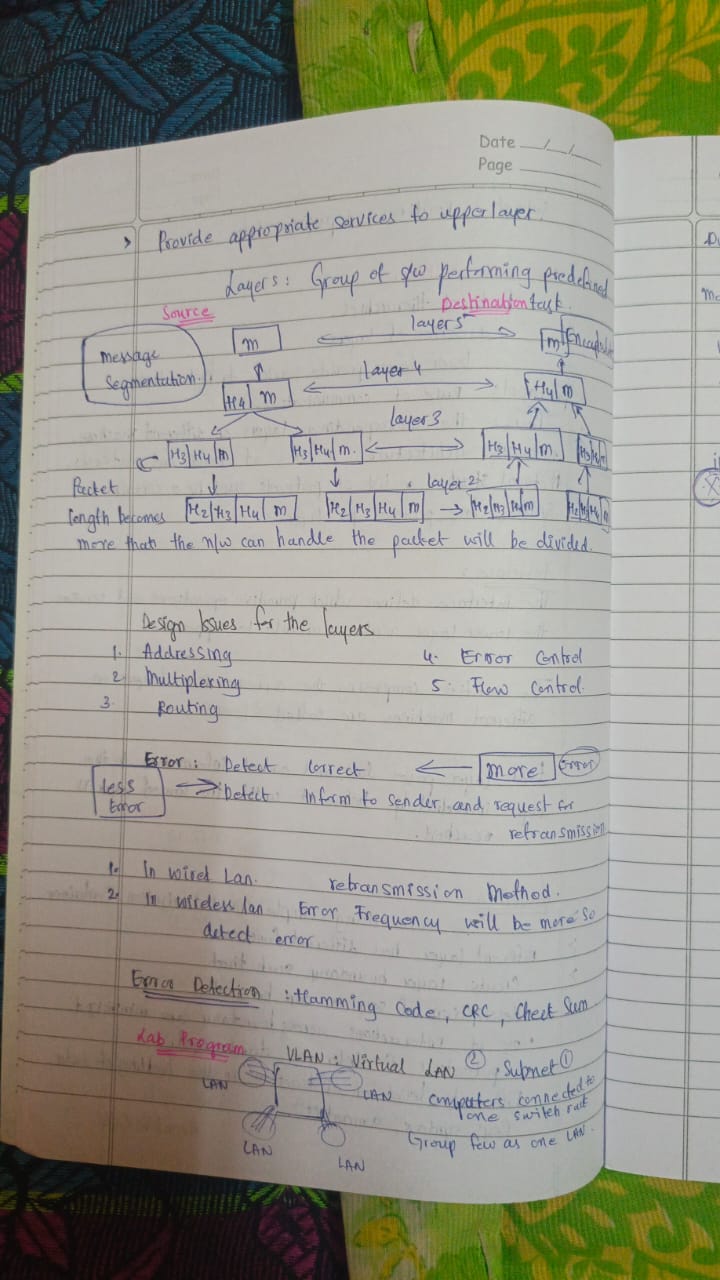 Date __/__/__
Page
> Provide appropriate services to upper layer.
Layers: Group of s/w performing predefined
task.
Source
Destination
message
Segmentation.
m
layer 5
m
H4 | m
layer 4
H4 | m
H3 | H4 | m
H3 | H4 | m
layer 3
H3 | H4 | m
H3 | H4 | m
Packet
length becomes
H2 | H3 | H4 | m
H2 | H3 | H4 | m
layer 2
H2 | H3 | H4 | m
H2 | H3 | H4 | m
more that the n/w can handle the packet will be divided.
Design Issues for the layers
1. Addressing
2. Multiplexing
3. Routing
4. Error Control
5. Flow Control.
Error: Detect correct
more
Error
Less
Error
Detect Inform to sender and request for
retransmission
1. In wired Lan. retransmission Method.
2. In wireless lan Error Frequency will be more so
detect error
Error Detection : Hamming Code, CRC, Check Sum
Lab Program
VLAN: Virtual LAN ② , Subnet ①
LAN
LAN
computers connected to
one switch
Group few as one LAN.
LAN
LAN